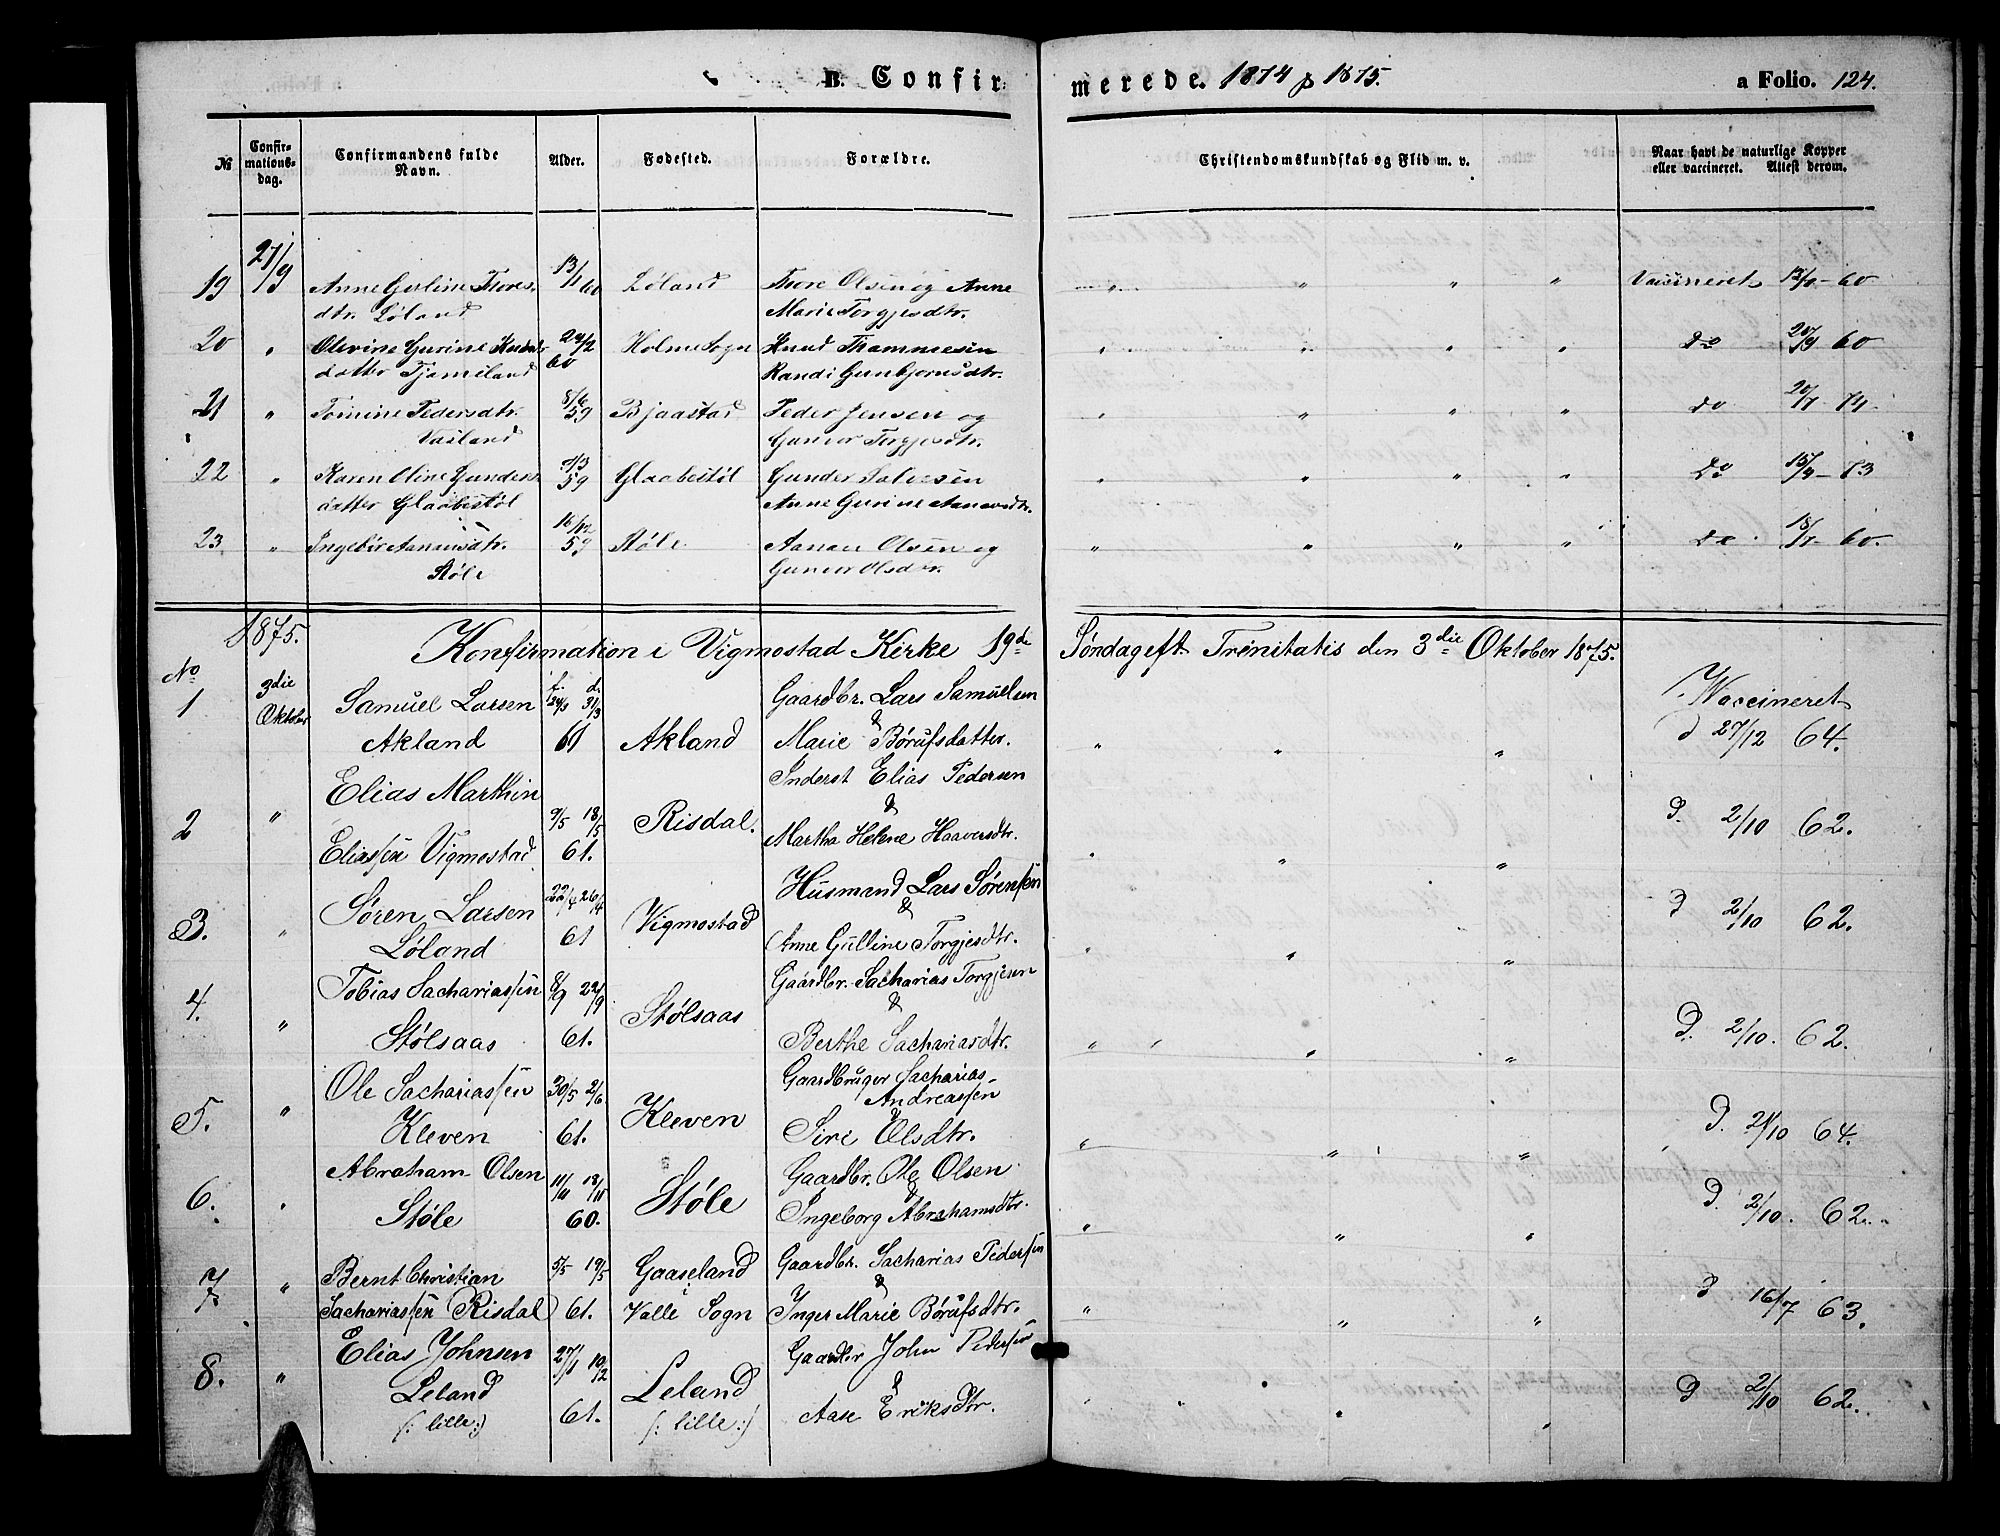 B. Confirmerede. 1874 & 1875. a Folio. 124.
№ Confirmationsdag. Confirmandens fulde Navn. Alder. Fødested. Forældre. Christendomskundskab og Flid m. v. Naar havt de naturlige Kopper eller vaccineret. Attest derom.
27/9
19 Anne Gurline Thores- 13/1 60 Løland Thore Olsen og Anne " " " " Vaccineret 60
dtr. Løland Marie Torgjesdtr.
20 " Olevine Gurine Knuds- 24/2 Holme Sogn Knud Thommesen " " " " do 60
datter Tjomsland 60 Randi Gunbjørnsdtr.
21 " Tomine Pedersdtr. 59 Bjaastad Peder Jensen og " " " " do 74
Vasland Gunvor Torgjesdtr.
22 " Karen Oline Gunders- 59 Glaabestøl Gunder Salvesen " " " " do 73
datter Glaabestøl Anne Gurine Aanensdtr.
23 " Ingebør Aanensdtr. 16/12 59 Støle Aanen Olsen og " " " " do 60.
Støle Gunvor Olsdtr.
1875. Konfirmation i Vigmostad Kirke 19de Søndag eft. Trinitatis den 3die Oktober 1875.
No
1 3die Oktober Samuel Larsen f. d. 31/3 Gaardbr. Lars Samuelsen Vaccineret
Akland 61 Akland & Marie Børufsdatter. " " " d 27/12 64.
2 " Elias Marthin 9/5 18/5 Risdal. Inderst Elias Pedersen & d. 2/10 62.
Eliassen Vigmostad 61. Martha Helene Haaversdtr. " " "
3. " Søren Larsen 22/4 26/4 Vigmostad Husmand Lars Sørensen & d 2/10 62.
Løland 61 Anne Gulline Torgjesdtr. " " "
4. " Tobias Sachariassen 8/9 22/9 Stølsaas Gaardbr. Sacharias Torgjesen &
Stølsaas 61. Berthe Sachariasdtr. " " " d. 2/10. 62.
5. " Ole Sachariassen 30/5 2/6 Kleven Gaardbruger Sacharias Andreassen &
Kleven 61. Siri Olsdtr. " " " d. 64.
6. " Abraham Olsen 11/11 18/11 Støle Gaardbr. Ole Olsen &
Støle 60. Ingeborg Abrahamsdtr. " " " d. 2/10. 62.
7. " Bernt Christian 5/5 19/5 Gaaseland i Gaardbr. Sacharias Pedersen & d
Sachariassen Risdal 61. Valle Sogn Inger Marie Børufsdtr. " " " 16/7 63.
8. " Elias Johnsen 27/1 10/2 Leland Gaardbr John Pedersen &
Leland 61. (: lille :) Aase Eriksdtr. " " " d 2/10 62.
(: lille :)